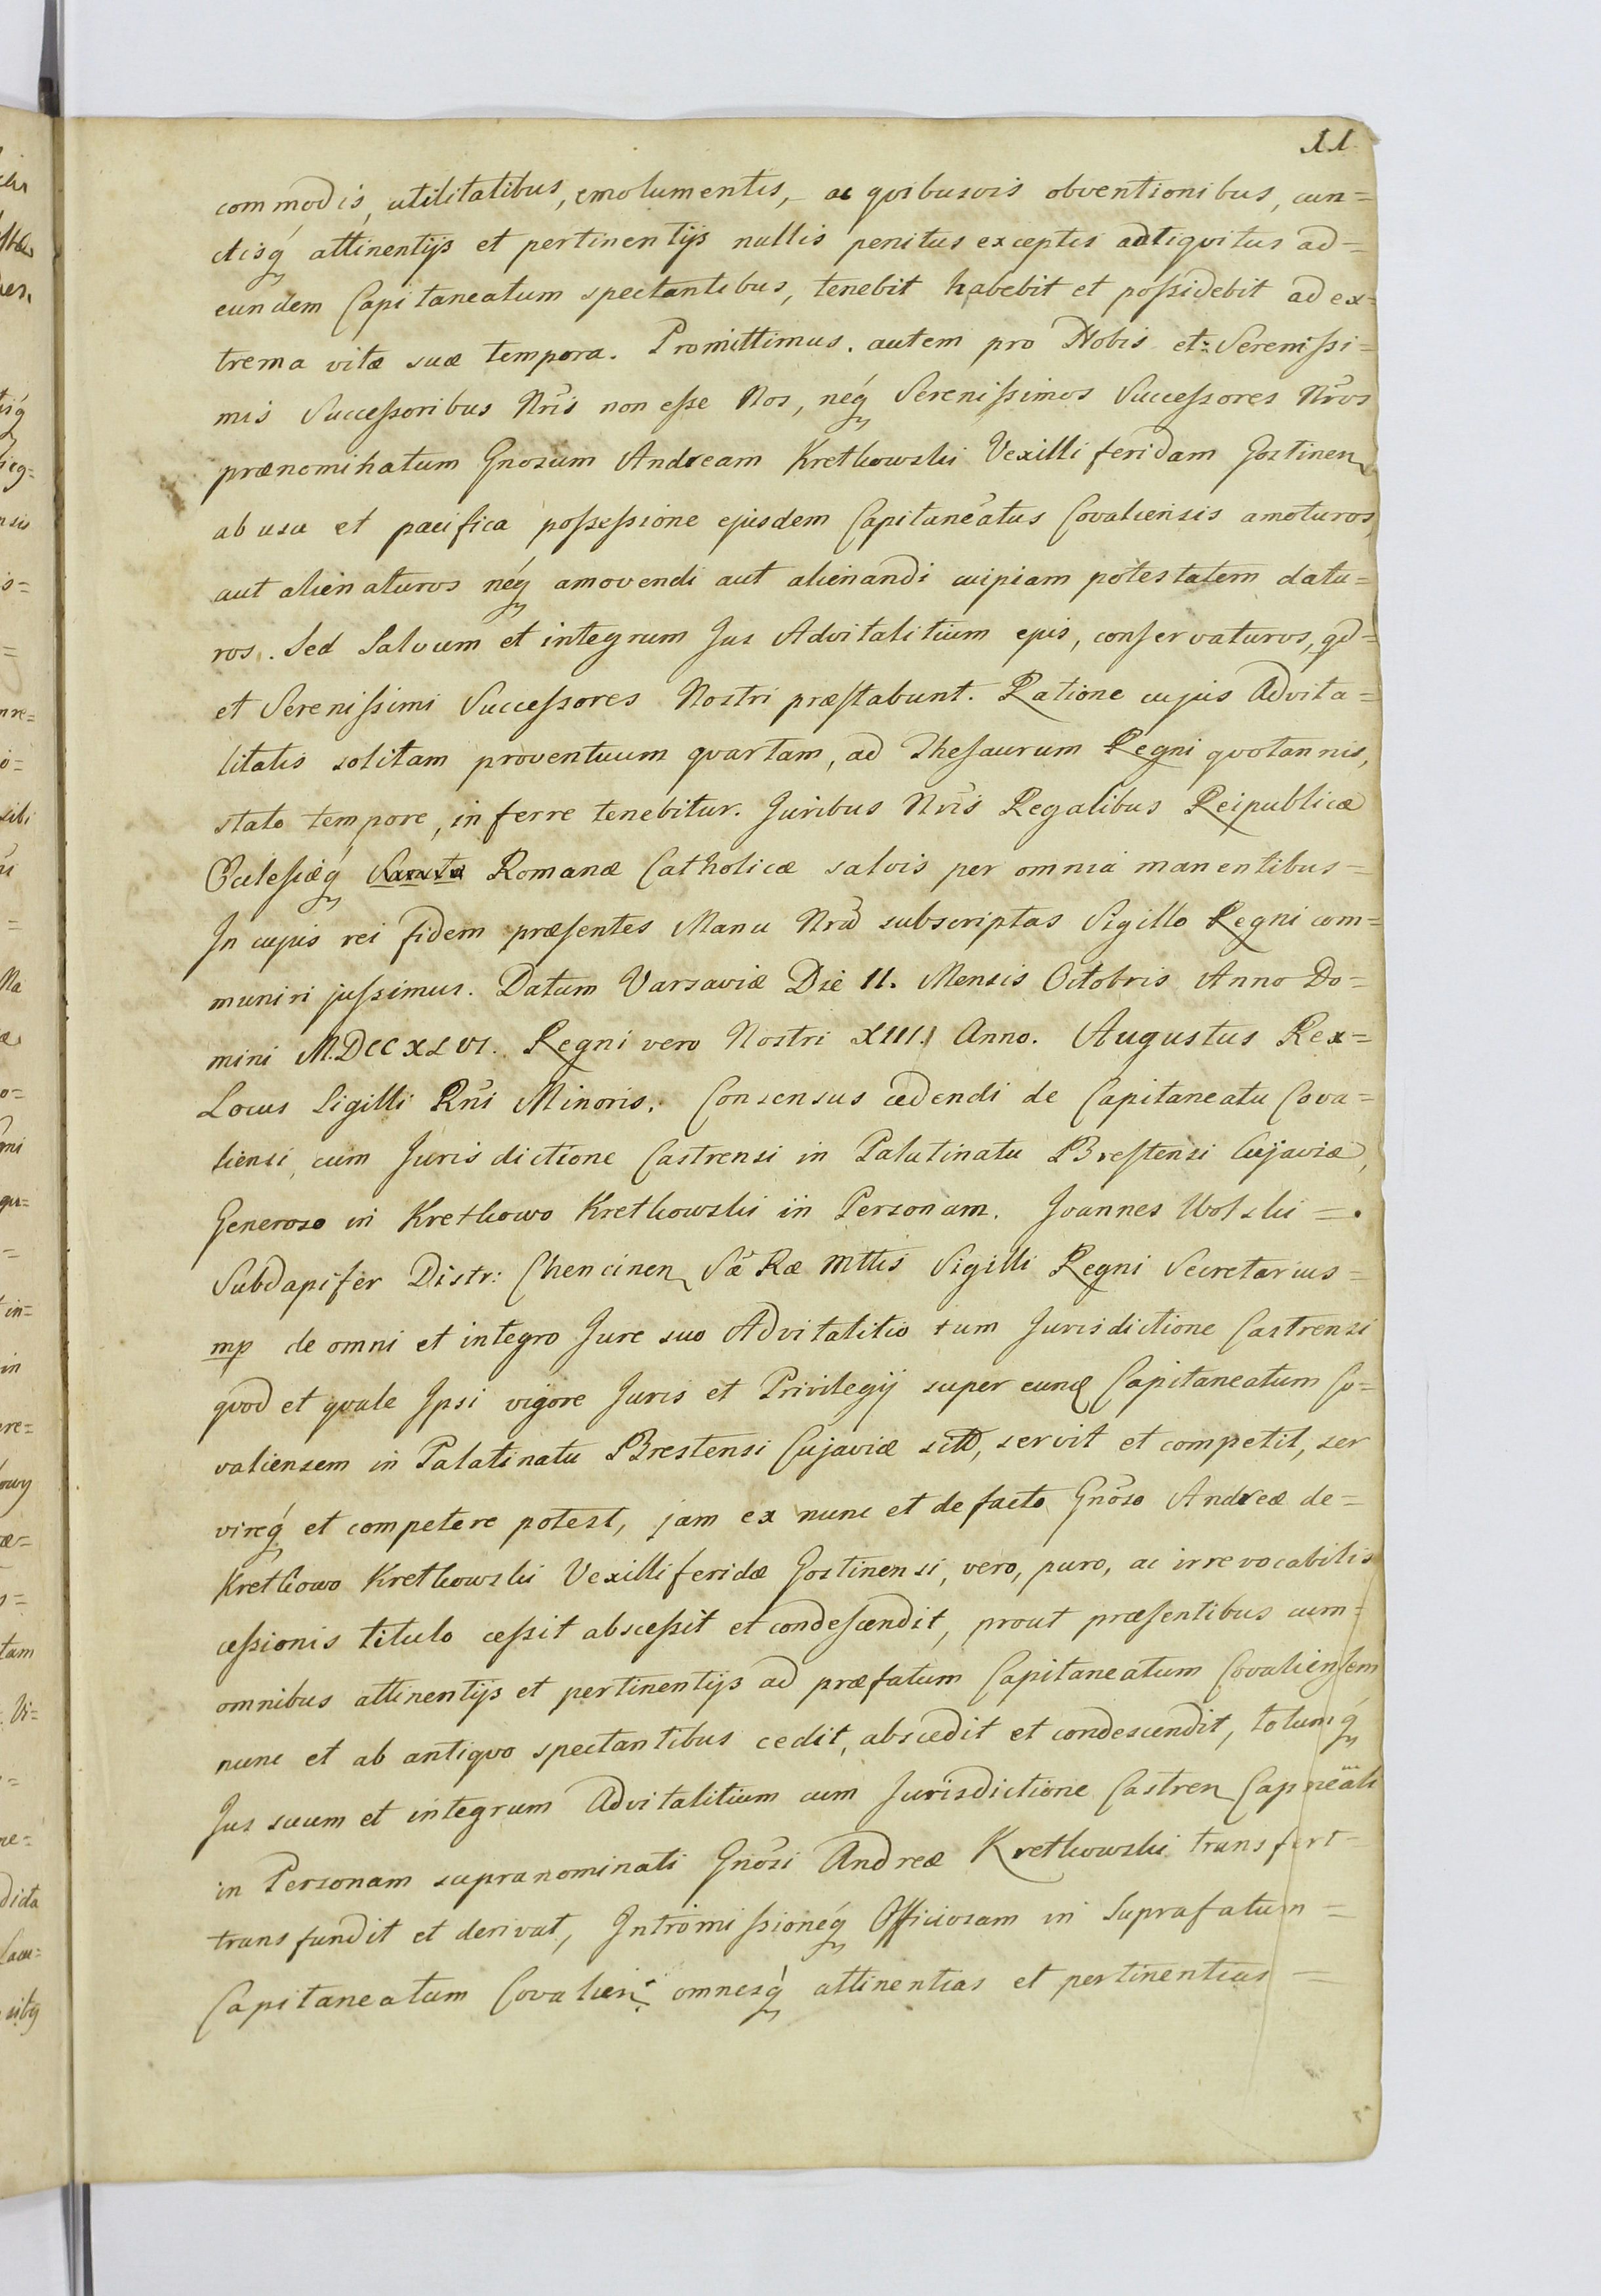 11
commodis, utilitatibus, emolumentis, ac qvibusvis obventionibus, cun=
ctisq́ attinentijs et pertinentijs nullis penitus exceptis adtiqvitus ad=
eundem Capitaneatum spectantibus, tenebit habebit et poſsidebit ad ex=
trema vitæ suæ tempora. Promittimus. autem pro Nobis et Sereniſsi=
mis Succeſsoribus Nris̄ non eſse Nos, neq́ Sereniſsimos Succeſsores Nros̄
prænominatum Gnosum Andream Kretkowski Vexilliferidam Gostinen
ab usu et pacifica poſseſsione ejusdem Capitaneatus Covaliensis amoturos,
aut alienaturos neq́ amovendi aut alienandi cuipiam potestatem datu=
ros. Sed Salvum et integrum Jus Advitalitium ejus, conſervaturos, qd=
et Sereniſsimi Succeſsores Nostri præſtabunt. Ratione cujus Advita=
litatis solitam proventuum qvartam, ad Theſaurum Regni qvotannis,
stato tempore, inferre tenebitur. Juribus Nris̄ Regalibus Reipublicæ
Eccleſiæq́ Romanæ Catholicæ salvis per omnia manentibus=
In cujus rei fidem præſentes Manu Nra̅ subscriptas Sigillo Regni com=
muniri juſsimus. Datum Varsaviæ Die 11. Mensis Octobris Anno Do=
mini M.DCCXLVI. Regni vero Nostri XIII. Anno. Augustus Rex=
Locus Sigilli Rn̄i Minoris. Consensus cedendi de Capitaneatu Cova=
liensi, cum Jurisdictione Castrensi in Palatinatu Breſtensi Cujaviæ,
Generoso in Kretkowo Kretkowski in Personam. Joannes Wolski =.
Subdapifer Distr: Chencinen Sæ Ræ Mttis Sigilli Regni Secretarius=
mp de omni et integro Jure suo Advitalitio cum Jurisdictione Castrensi
qvod et qvale Ipsi vigore Juris et Privilegij super eund Capitaneatum Co=
valiensem in Palatinatu Brestensi Cujaviæ servit et competit, ser
vireq́ et competere potest, jam ex nunc et de facto Gnōso Andreæ de=
Kretkowo Kretkowski Vexilliferidæ Gostinensi, vero, puro, ac irrevocabilis
ceſsionis titulo ceſsit absceſsit et condeſcendit, prout præſentibus cum=
omnibus attinentijs et pertinentijs ad præfatum Capitaneatum Covalienſem
nunc et ab antiqvo spectantibus cedit, abscedit et condescendit, totumq́
Jus suum et integrum Advitalitium cum Jurisdictione Castren Capneāli
in Personam supranominati Gnōsi Andreæ Kretkowski transfert=
transfundit et derivat, Intromiſsioneq́ Officiosam in Suprafatum=
Capitaneatum Covalien: omnesq́ attinentias et pertinentias=